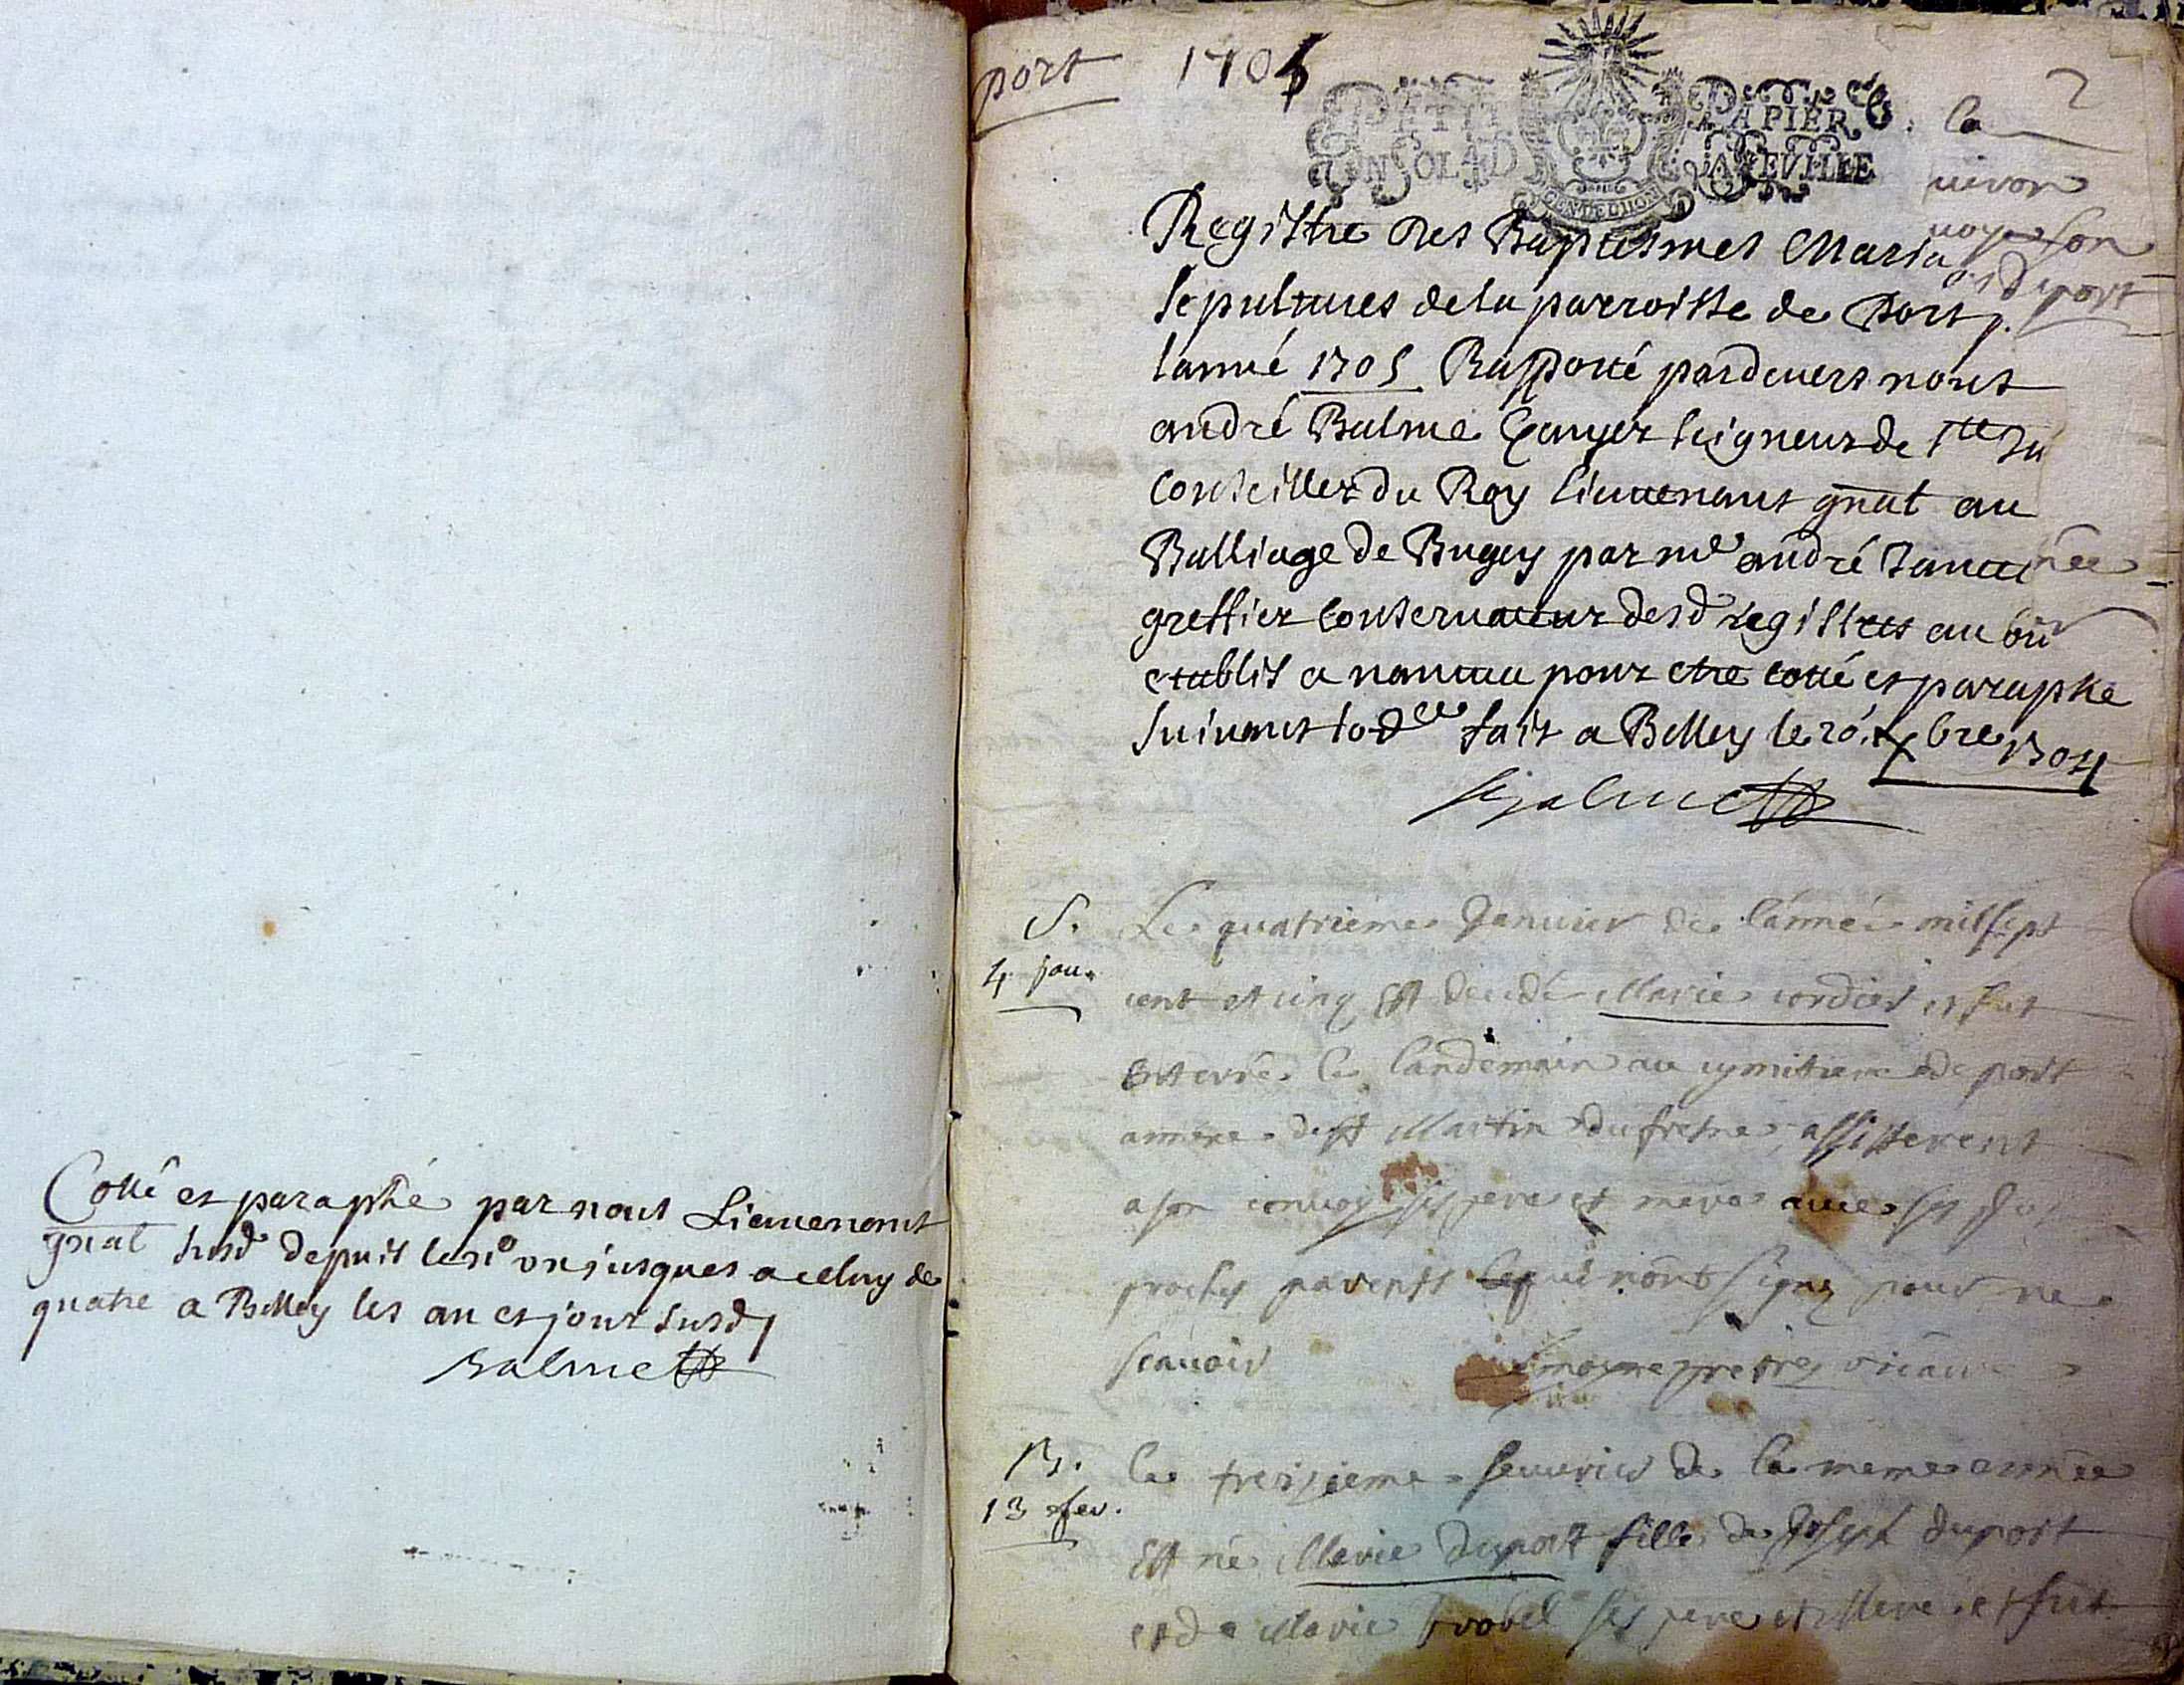 Cotté et paraphé par nous Lieutenant
gnal susd depuis le no un jusques a celluy de
quatre a Belley les an et jour susd
Balme
port 1705
2
PETIT PAPIER
UN SOL 4 D LA FEVILLE
GEN DE DIJON
la
uivon
son
duport
Registre des Baptesmes Maria
sepultures de la parroisse de Port p.
lanné 1705 Rapporté pardevers nous
andré Balme Escuyer seigneur de Ste
Conseiller du Roy lieutenant gnal au
Balliage de Bugey par me andré
née
greffier conservateur desd registres au
etablis a nantua pour etre cotté et paraphé
suivant lod fait a Belley le 20. xbre 1704
Balme
S.
4 jan.
Le quatrieme Janvier de lánnée mil sept
cent et cinq Est decedé Marie cordier et fut
Enterré le landemain au cymitiere de port
de Martin dufresne, assisterent
a son convoy ses pere et mere avec ses plus
proches parents qui nónt signé pour ne
scavoir
prestre vicaire
B.
13 fev.
Le treizieme fevvrier de la meme année
Est né Marie duport fille de Joseph duport
et de Marie ses pere et Mere et fut